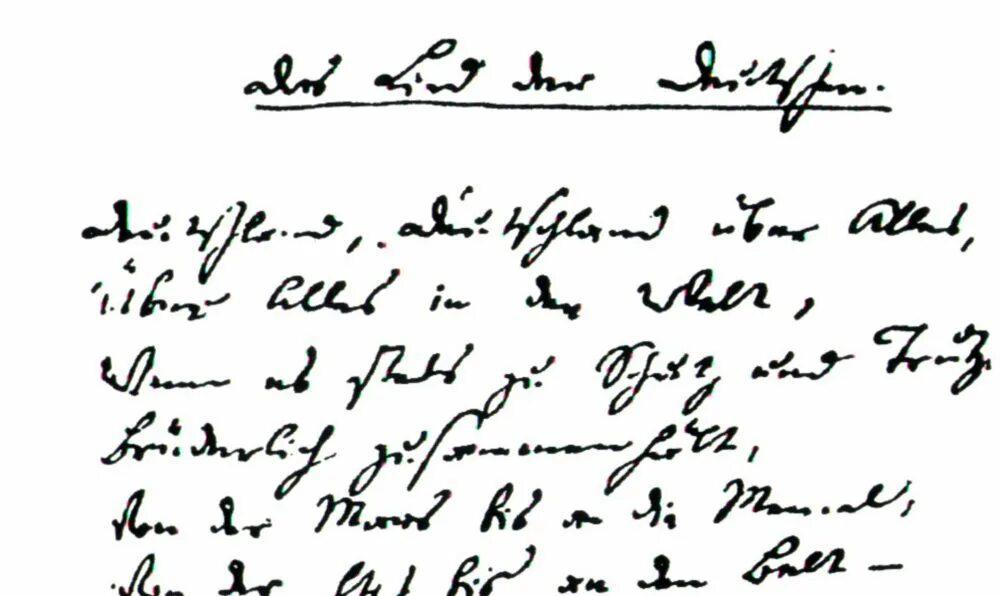 Das Lied der Deutschen.
Deutschland, Deutschland über Alles,
Über Alles in der Welt,
Wenn es stets zu Schutz und Trutz
Brüderlich zusammenhält,
Von der Maas bis an die Memel,
Von der Etsch bis an den Belt –